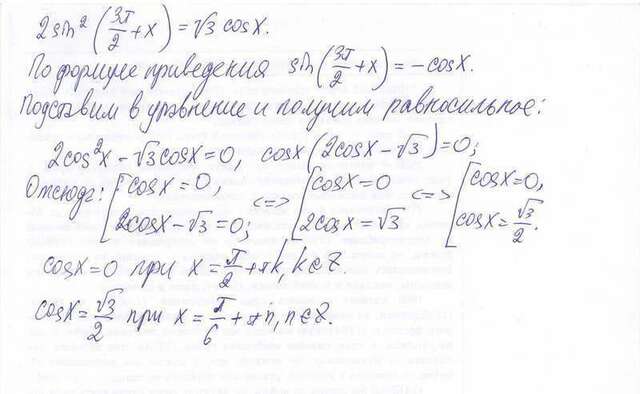 2sin²(3π/2 + x) = √3 cosx.
По формуле приведения sin(3π/2 + x) = -cosx.
Подставим в уравнение и получим равносильное:
2cos²x - √3cosx = 0, cosx(2cosx - √3) = 0;
Отсюда: [cosx = 0, 2cosx - √3 = 0; <=> [cosx = 0 2cosx = √3 <=> [cosx = 0, cosx = √3/2.
cosx = 0 при x = π/2 + πk, k∈Z.
cosx = √3/2 при x = π/6 + πn, n∈Z.